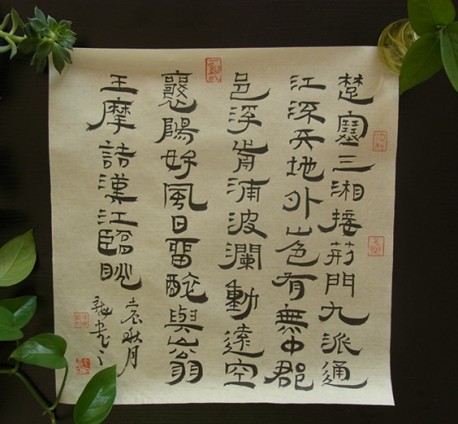 楚塞三湘接荊門九派通
江流天地外山色有無中郡
邑浮前浦波瀾動遠空
襄陽好風日留醉與山翁
王摩詰漢江臨眺
秋月
書之